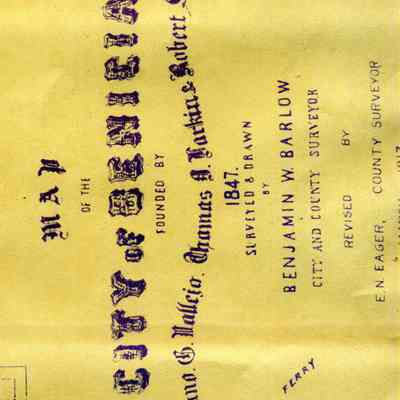 MAP
OF THE
CITY OF BENICIA
FOUNDED BY
Thomas O. Larkin & Robert
1847.
SURVEYED & DRAWN
BY
BENJAMIN W. BARLOW
CITY AND COUNTY SURVEYOR
REVISED
BY
E.N. EAGER, COUNTY SURVEYOR
FERRY